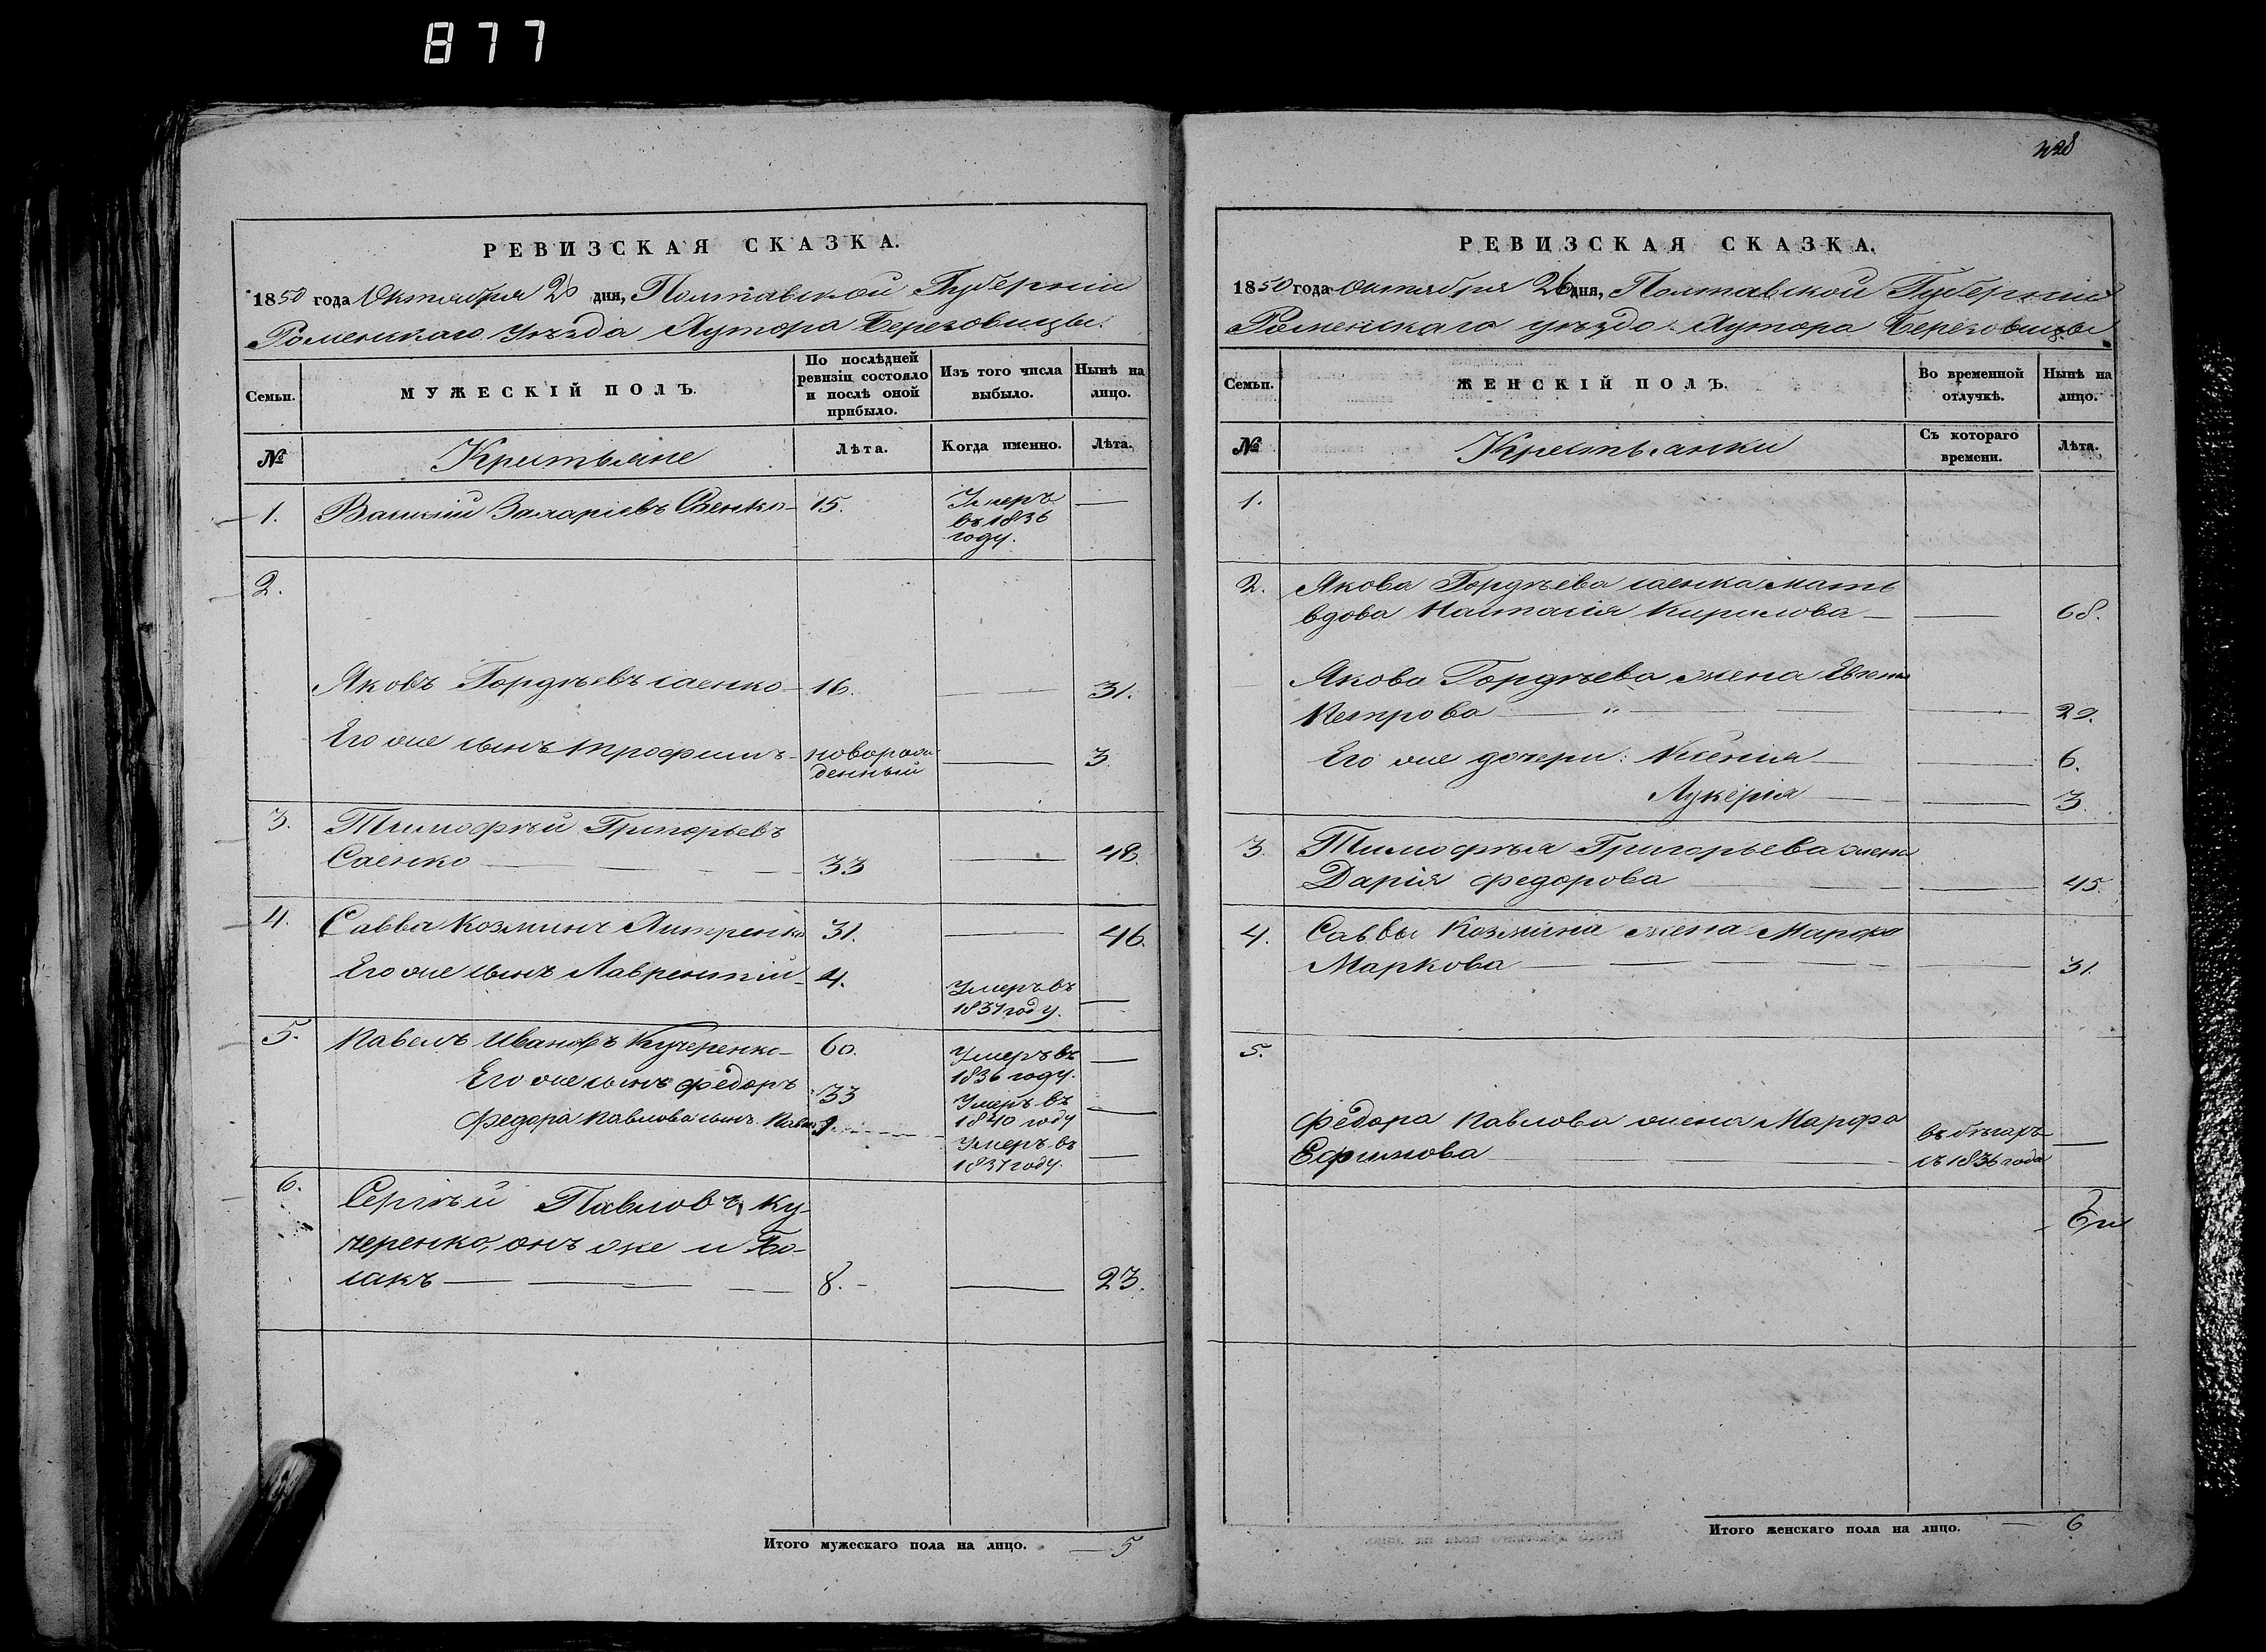 877
428
РЕВИЗСКАЯ СКАЗКА.
1850 года Октября 26 дня, Полтавской Губерніи
Роменскаго уѣзда Хутора Березовицы.
Семьи.
МУЖЕСКІЙ ПОЛЪ.
По послѣдней
ревизіи состояло
и послѣ оной
прибыло.
Изъ того числа
выбыло.
Нынѣ на
лицо.
№
Крестьяне
Лѣта.
Когда именно.
Лѣта.
1.
Василій Захаріевъ Саенко 15. Умеръ —
въ 1836
году.
2.
Яковъ Гордѣевъ саенко 16. — 31.
Его же сынъ Трофимъ новорож- — 3.
денный
3. Тимофѣй Григорьевъ
Саенко — 33 — 48.
4. Савва Козминъ 31. — 46.
Его же сынъ Лаврентій 4. Умеръ въ —
1837 году.
5. Павелъ Ивановъ Кучеренко 60. Умеръ въ —
1836 году.
Его же сынъ Федоръ 33 Умеръ въ —
1840 году
Федора Павлова сынъ Умеръ въ —
1837 году.
6. Сергѣй Павловъ Ку-
черенко, онъ же и
8. — 23.
Итого мужескаго пола на лицо. — 5
РЕВИЗСКАЯ СКАЗКА.
1850 года Октября 26 дня, Полтавской Губерніи
Роменскаго уѣзда Хутора Березовицы
Семьи.
ЖЕНСКІЙ ПОЛЪ.
Во временной
отлучкѣ.
Нынѣ на
лицо.
№
Крестьянки
Съ котораго
времени.
Лѣта.
1.
2. Якова Гордѣева саенка мать
вдова Настасія Кирилова — 68.
Якова Гордѣева жена
Петрова — 29.
Его же дочери: Ксенія — 6.
Лукерія — 3.
3. Тимофѣя Григорьева жена
Дарія Федорова — 45.
4. Саввы Козмина жена Марфа
Маркова — 31.
5.
Федора Павлова жена Марфа въ бѣгахъ —
Ефимова съ 1836 года
Итого женскаго пола на лицо. — 6